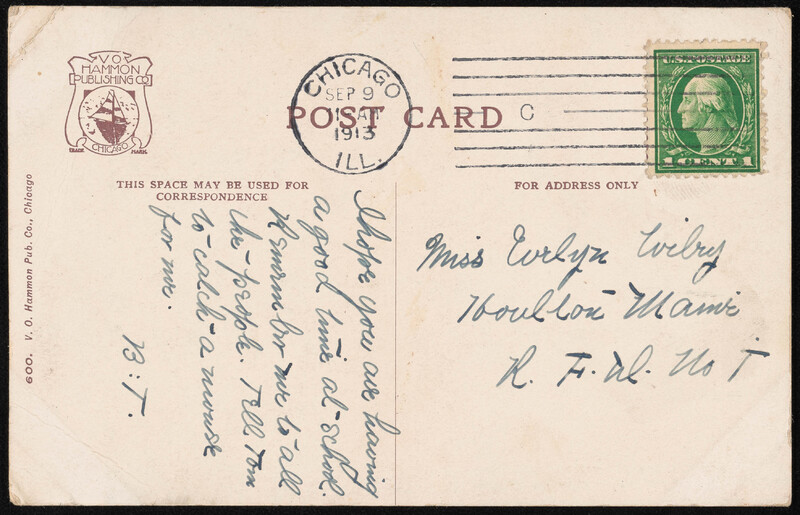 V O
HAMMON
PUBLISHING CO
CHICAGO
TRADE MARK
CHICAGO
SEP 9
1913
ILL.
POST CARD
C
U.S. POSTAGE
1 CENT 1
THIS SPACE MAY BE USED FOR
CORRESPONDENCE
FOR ADDRESS ONLY
600. V. O. Hammon Pub. Co., Chicago
I hope you are having
a good time at school.
Remember me to all
the people. Tell Tom
to catch a mouse
for me.
B. T.
Miss Evelyn
Houlton Maine
R. F. D. No